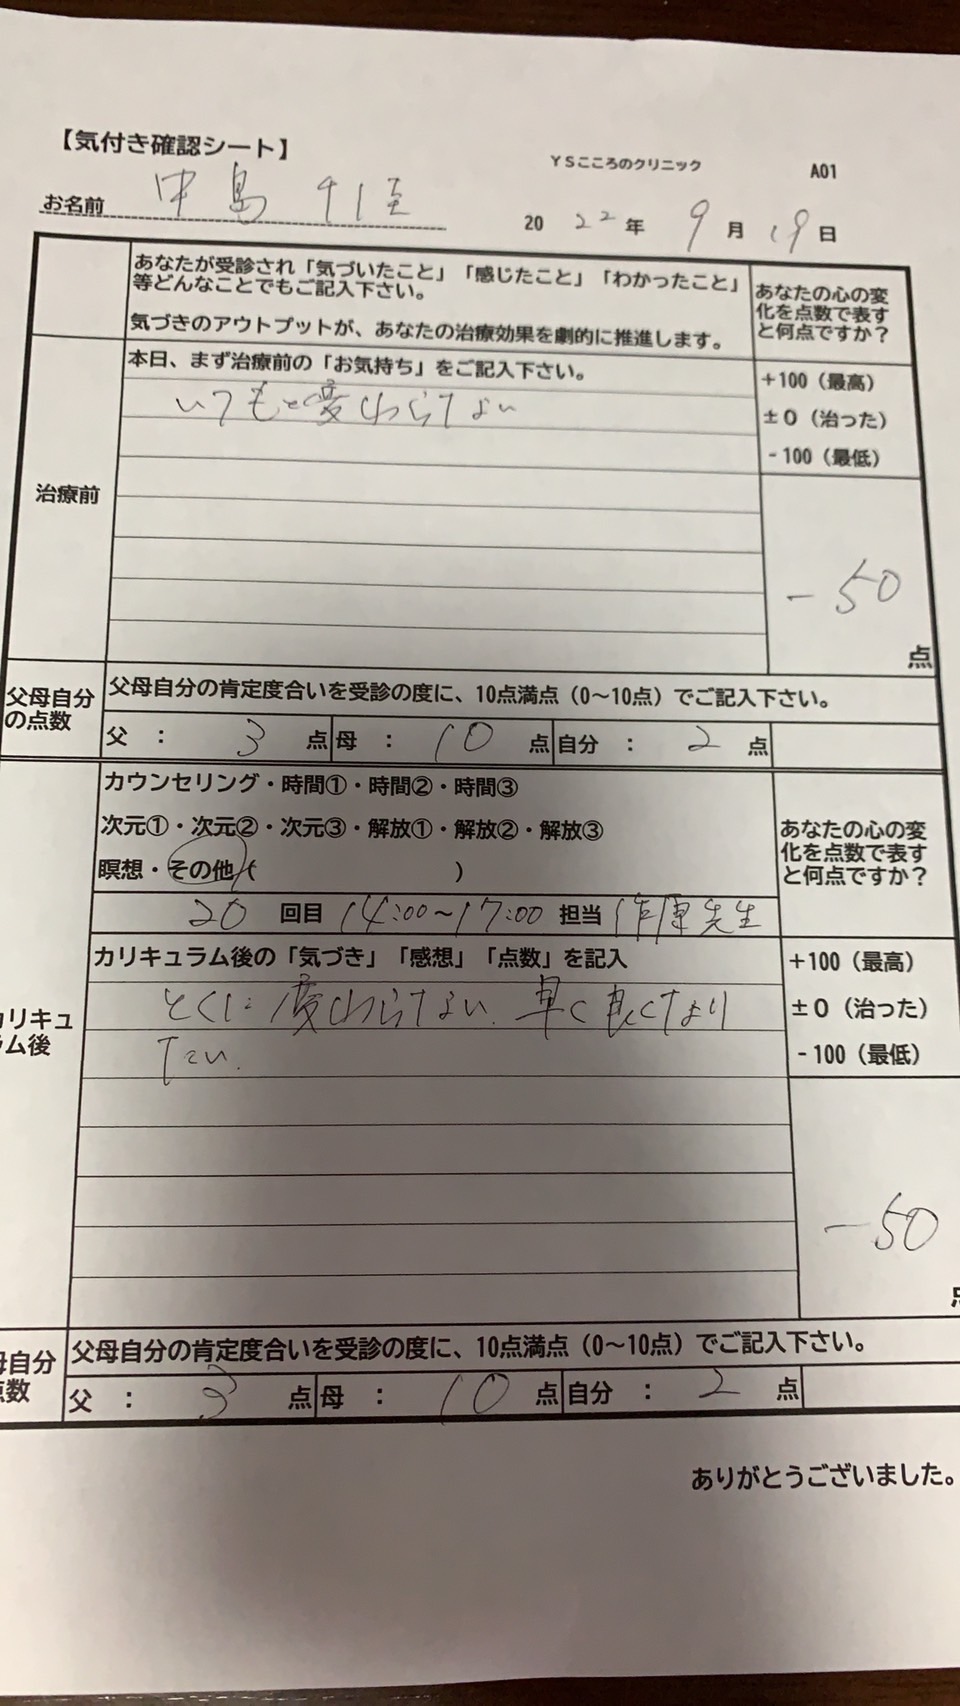 【気付き確認シート】
YSこころのクリニック A01
お名前 中島 20 22 年 9 月 19 日
あなたが受診され「気づいたこと」「感じたこと」「わかったこと」
等どんなことでもご記入下さい。
気づきのアウトプットが、あなたの治療効果を劇的に推進します。
あなたの心の変
化を点数で表す
と何点ですか?
治療前
本日、まず治療前の「お気持ち」をご記入下さい。
いつもと変わらない
+100（最高）
±0（治った）
-100（最低）
-50
点
父母自分
の点数
父母自分の肯定度合いを受診の度に、10点満点（0～10点）でご記入下さい。
父 ： 3 点 母 ： 10 点 自分 ： 2 点
カウンセリング・時間①・時間②・時間③
次元①・次元②・次元③・解放①・解放②・解放③
瞑想・その他（ ）
あなたの心の変
化を点数で表す
と何点ですか?
20 回目 14:00～17:00 担当 先生
カリキュ
ラム後
カリキュラム後の「気づき」「感想」「点数」を記入
とくに変わらない. 早く良くなり
たい.
+100（最高）
±0（治った）
-100（最低）
-50
点
母自分
点数
父母自分の肯定度合いを受診の度に、10点満点（0～10点）でご記入下さい。
父 ： 3 点 母 ： 10 点 自分 ： 2 点
ありがとうございました。